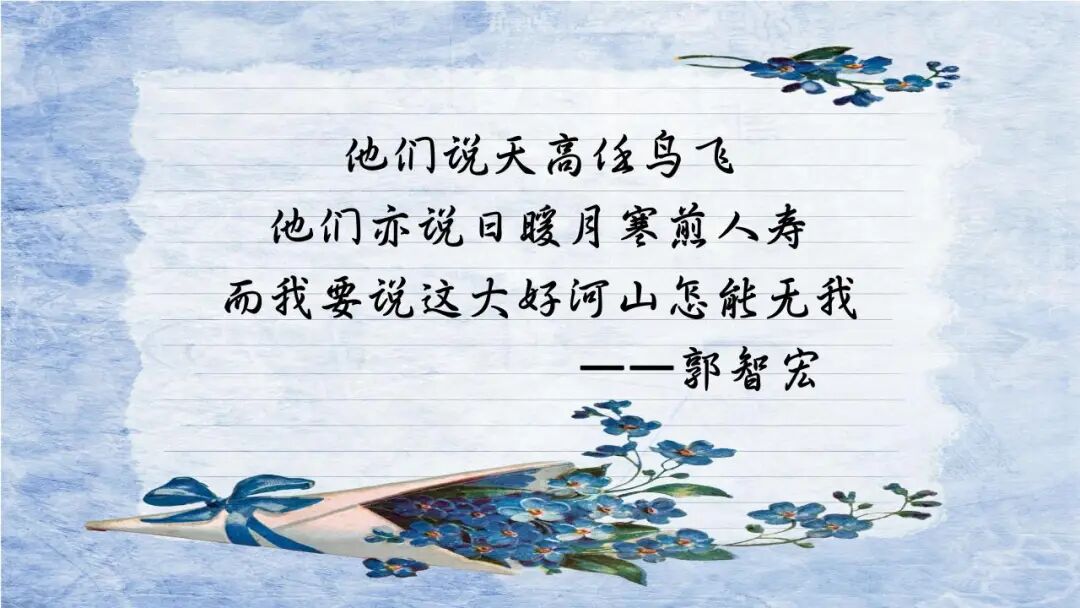 他们说天高任鸟飞
他们亦说日暖月寒煎人寿
而我要说这大好河山怎能无我
——郭智宏